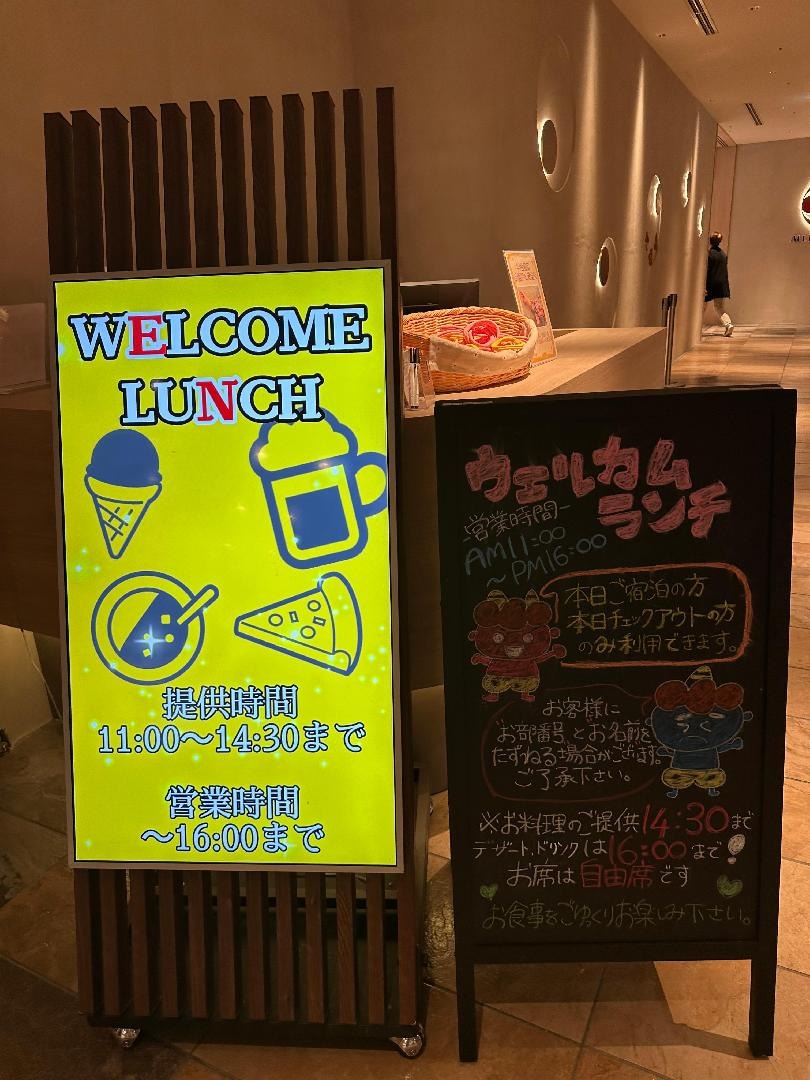 WELCOME
LUNCH
提供時間
11:00～14:30まで
営業時間
～16:00まで
ウェルカム
ランチ
営業時間
AM11:00
～PM16:00
本日ご宿泊の方
本日チェックアウトの方
のみ利用できます。
お客様に
お部番号とお名前を
たずねる場合がございます。
ご了承下さい。
※お料理のご提供14:30まで
デザート、ドリンクは16:00まで!
お席は自由席です
お食事をごゆっくりお楽しみ下さい。